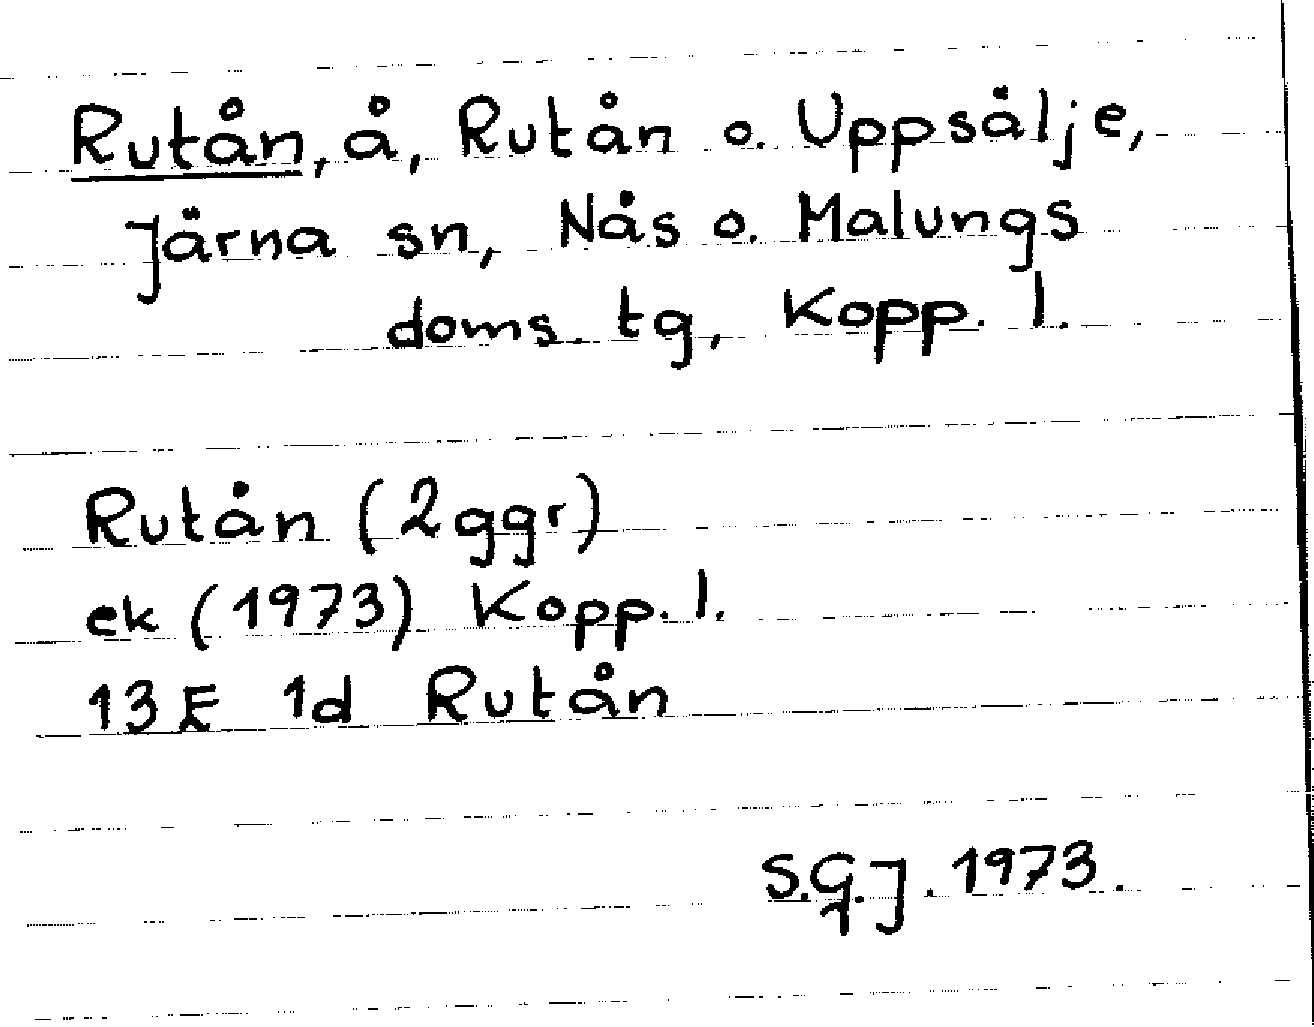 Rutån, å, Rutån o. Uppsälje,
Järna sn, Nås o. Malungs
doms. tg, Kopp. l.
Rutån (2 ggr)
ek (1973) Kopp. l.
13E 1d Rutån
S.G.J. 1973.